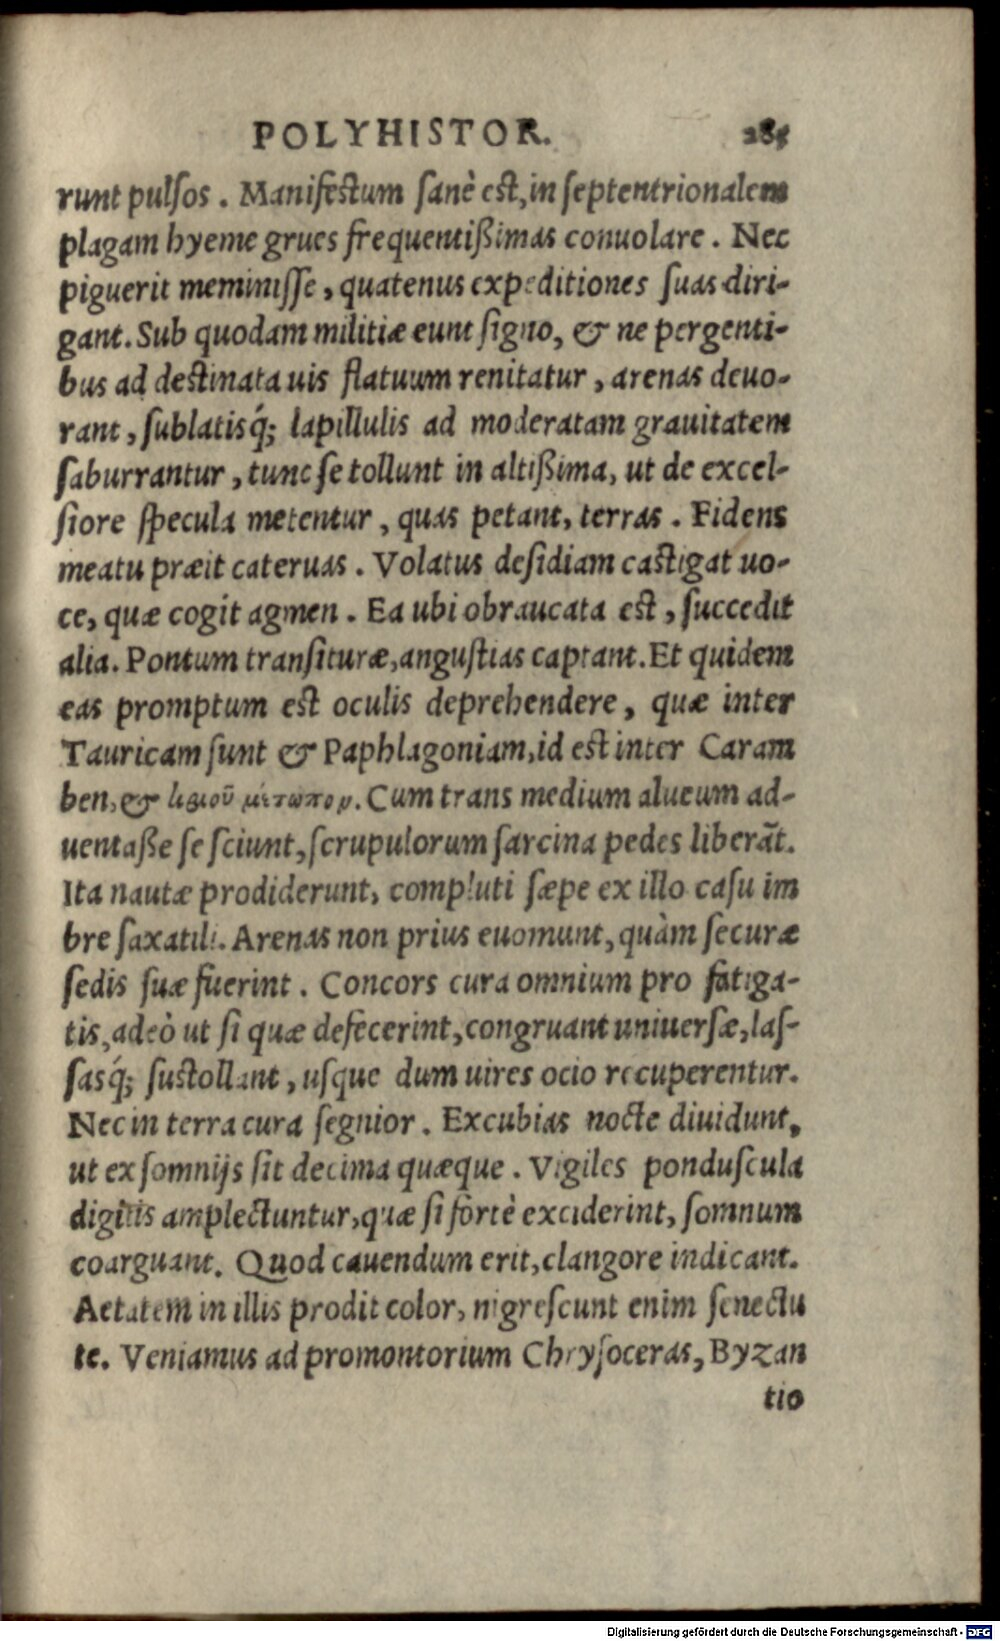 POLYHISTOR. 285
runt pulsos. Manifestum sanè est, in septentrionalem
plagam hyeme grues frequentißimas conuolare. Nec
piguerit meminisse, quatenus expeditiones suas diri-
gant. Sub quodam militiæ eunt signo, & ne pergenti-
bus ad destinata uis flatuum renitatur, arenas deuo-
rant, sublatisq́; lapillulis ad moderatam grauitatem
saburrantur, tunc se tollunt in altißima, ut de excel-
siore specula metentur, quas petant, terras. Fidens
meatu præit cateruas. Volatus desidiam castigat uo-
ce, quæ cogit agmen. Ea ubi obraucata est, succedit
alia. Pontum transituræ, angustias captant. Et quidem
eas promptum est oculis deprehendere, quæ inter
Tauricam sunt & Paphlagoniam, id est inter Caram
ben, & μέτωπον. Cum trans medium alueum ad-
uentaße se sciunt, scrupulorum sarcina pedes liberāt.
Ita nautæ prodiderunt, compluti sæpe ex illo casu im
bre saxatili. Arenas non prius euomunt, quàm securæ
sedis suæ fuerint. Concors cura omnium pro fatiga-
tis, adeò ut si quæ defecerint, congruant uniuersæ, las-
sasq́; sustollant, usque dum uires ocio recuperentur.
Nec in terra cura segnior. Excubias nocte diuidunt,
ut ex somnijs sit decima quæque. Vigiles ponduscula
digitis amplectuntur, quæ si fortè exciderint, somnum
coarguant. Quod cauendum erit, clangore indicant.
Aetatem in illis prodit color, nigrescunt enim senectu
te. Veniamus ad promontorium Chrysoceras, Byzan
tio
Digitalisierung gefördert durch die Deutsche Forschungsgemeinschaft - DFG